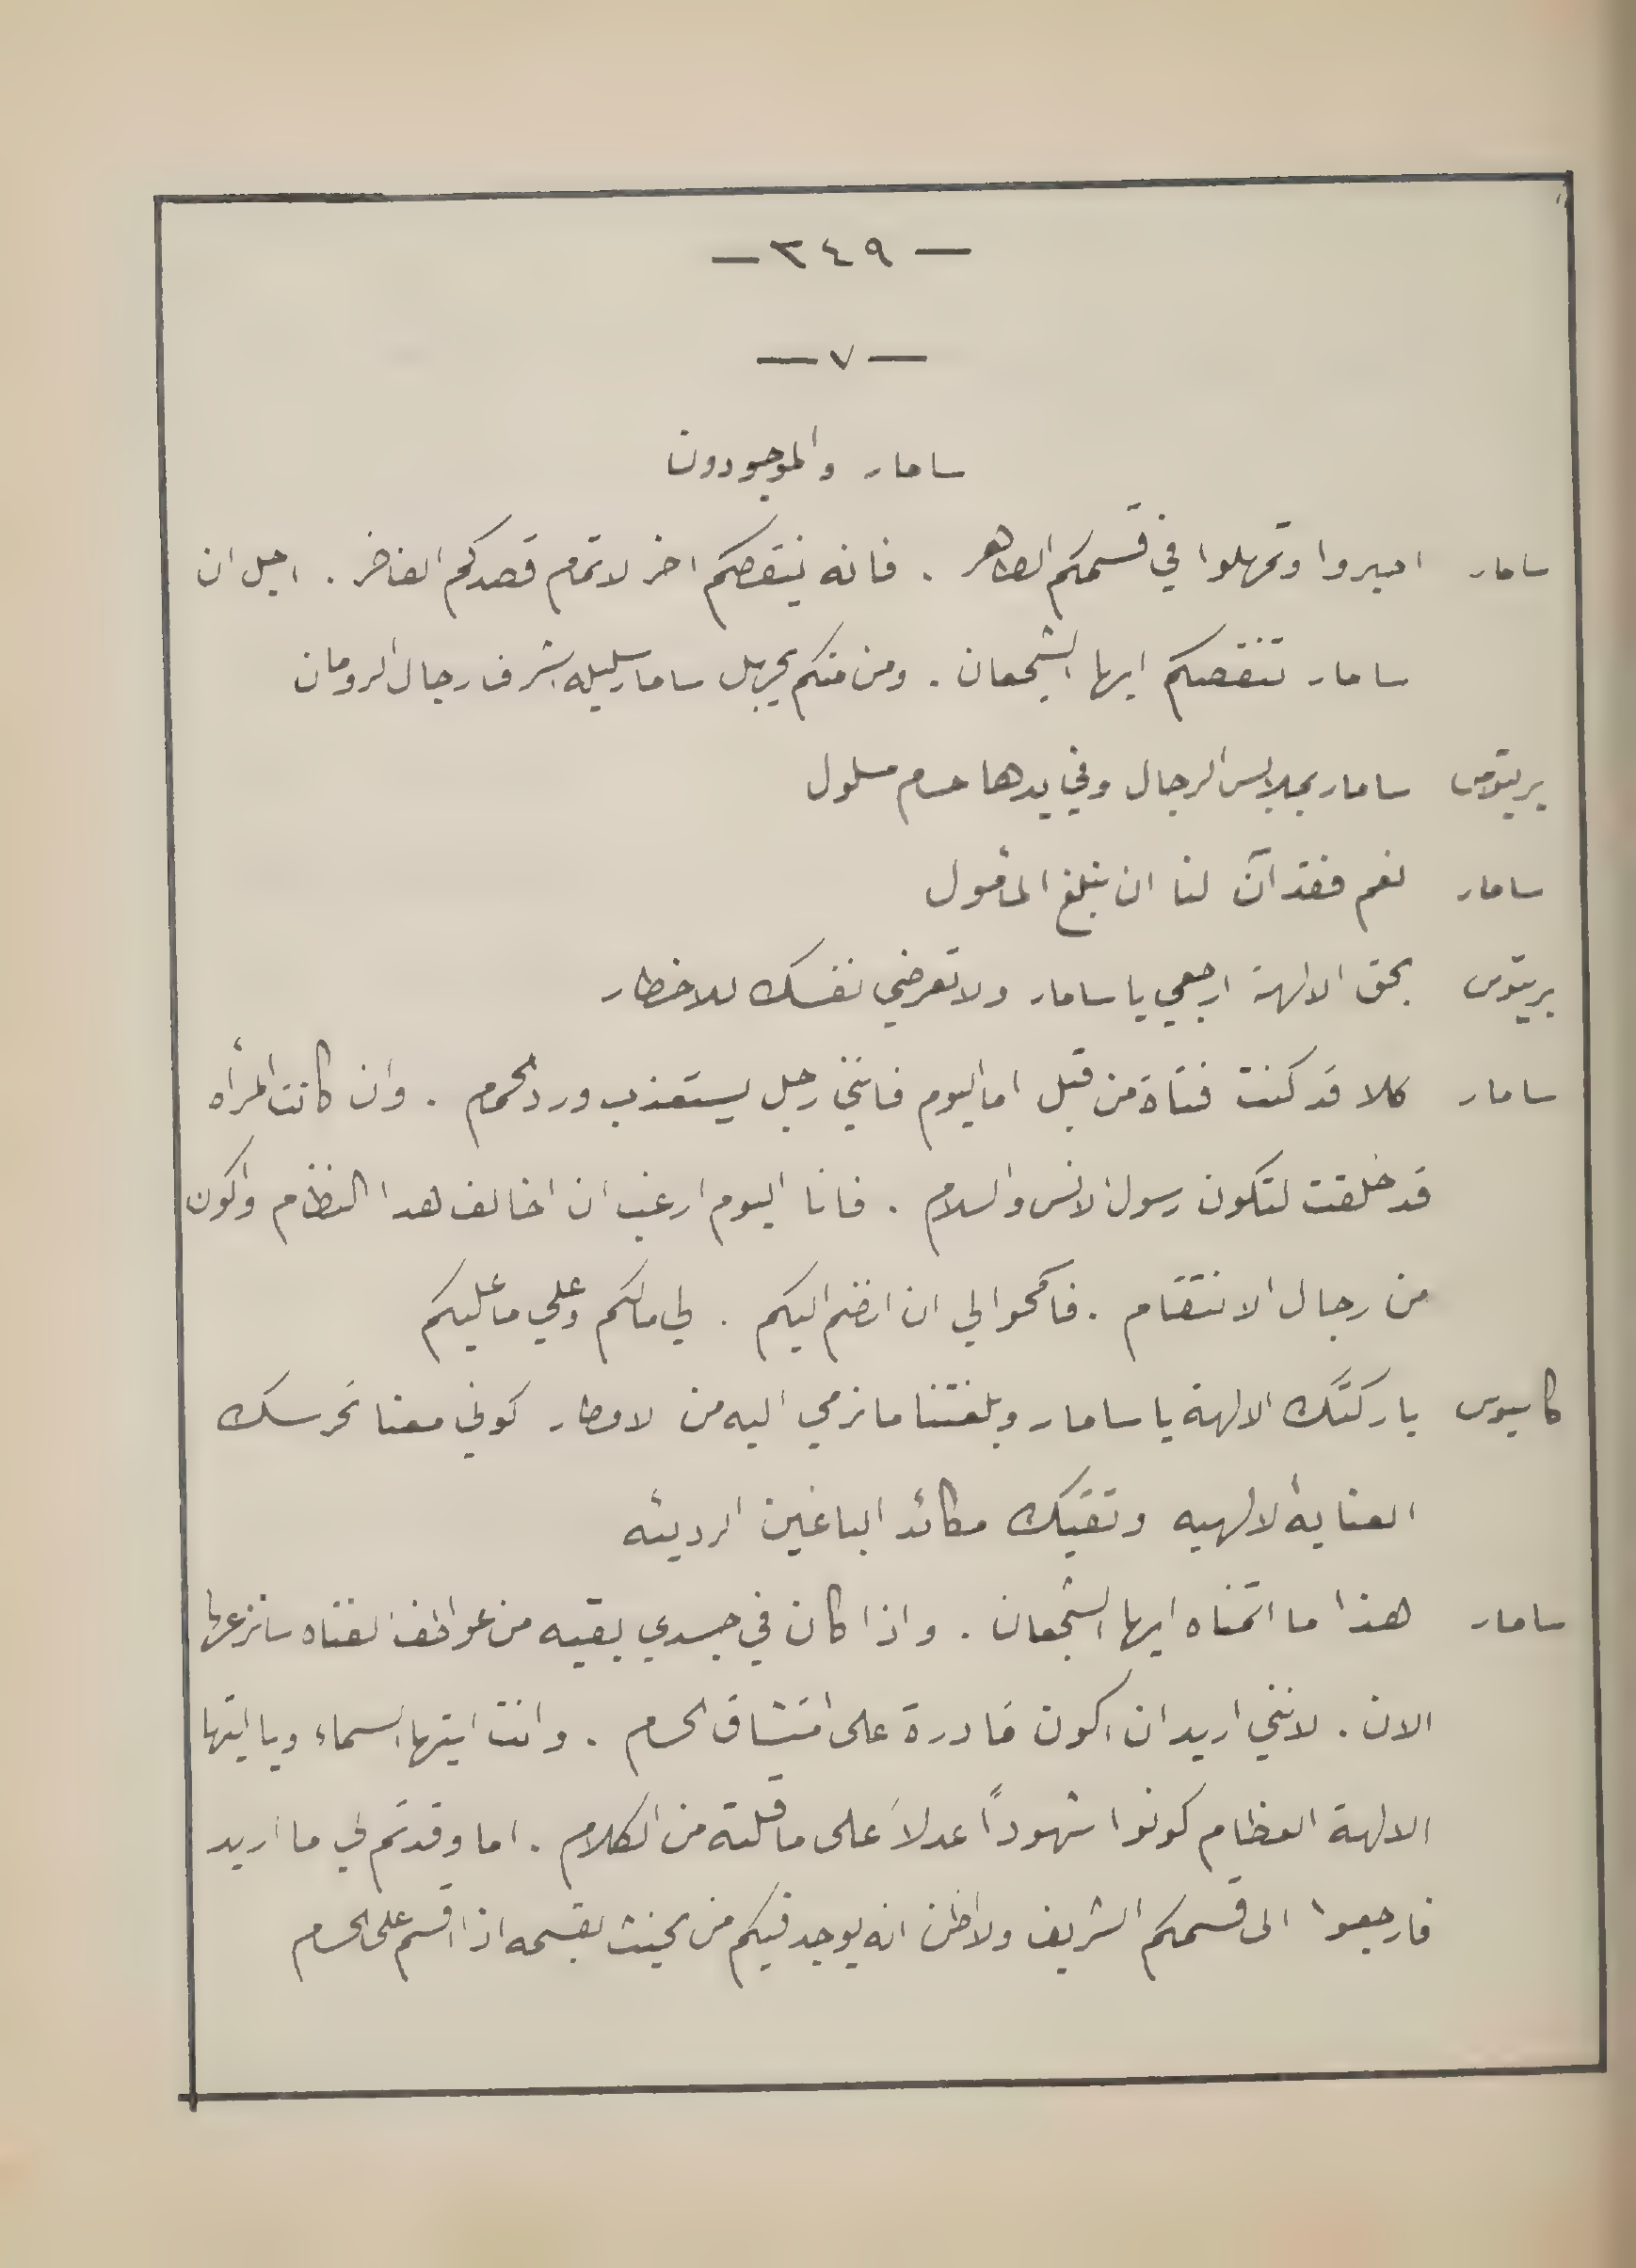 — ٣٤٩ —
— ٧ —
سامار والموجودون
سامار اصبروا وتمهلوا في قسمكم الطاهر . فانه ينقصكم اخر لاتمام قصدكم الفاخر . اجل ان
سامار تنقصكم ايها الشجعان . ومن منكم يجهل سامار سليله اشرف رجال الرومان
بريتوس سامار بملابس الرجال وفي يدها حسام مسلول
سامار نعم فقد آن لنا ان نبلغ المأمول
بريتوس بحق الالهة ارجعي يا سامار ولا تعرضي نفسك للاخطار
سامار كلا قد كنت فتاة من قبل اما اليوم فانني رجل يستعذب ورد الحمام . وان كانت المرأه
قد خلقت لتكون رسول الانس والسلام . فانا اليوم ارغب ان اخالف هدا النظام واكون
من رجال الانتقام . فاسمحوا لي ان انضم اليكم . لي مالكم وعلي ما عليكم
كاسيوس باركتك الالهة يا سامار وبلغتنا ما نرمي اليه من الاوطار كوني معنا تحرسك
العناية الالهيه وتقيك مكائد الباغين الرديئه
سامار هذا ما اتمناه ايها الشجعان . واذا كان في جسدي بقيه من عواطف الفتاه سانزعها
الان . لانني اريد ان اكون قادرة على امتشاق الحسام . وانت ايتها السماء ويا ايتها
الالهة العظام كونوا شهوداً عدلاً على ما قلته من الكلام . اما وقد تم لي ما اريد
فارجعوا الى قسمكم الشريف ولا اظن انه يوجد فيكم من يحنث بقسمه اذا اقسم على الحسام